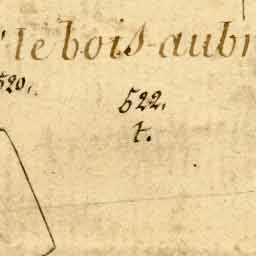 le bois-aub
520.
522.
t.